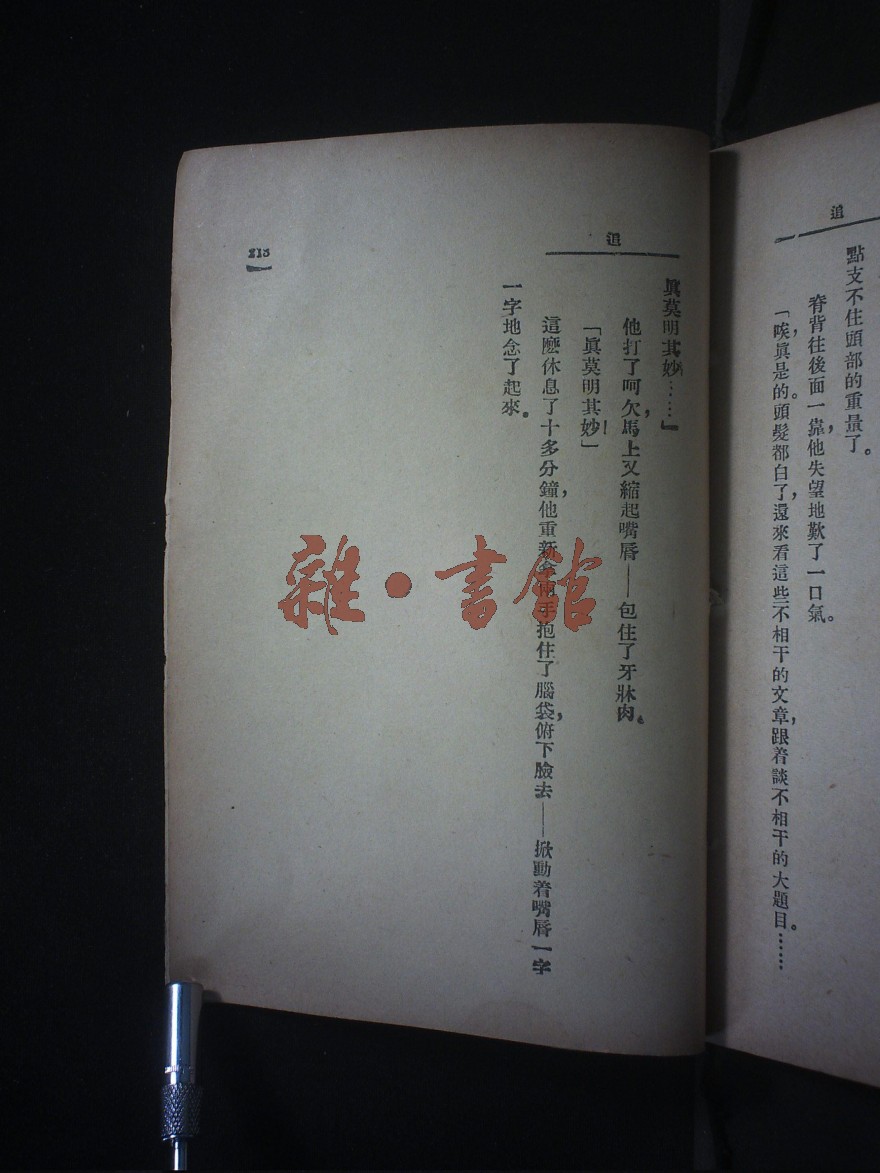 追
點支不住頭部的重量了。
脊背往後面一靠,他失望地歎了一口氣。
「唉,眞是的。頭髮都白了,還來看這些不相干的文章,跟着談不相干的大題目。……
追
眞莫明其妙……」
他打了呵欠,馬上又縮起嘴唇——包住了牙牀肉。
「眞莫明其妙!」
這麽休息了十多分鐘,他重新拿兩手抱住了腦袋,俯下臉去——掀動着嘴唇一字
一字地念了起來。
213
雜·書館